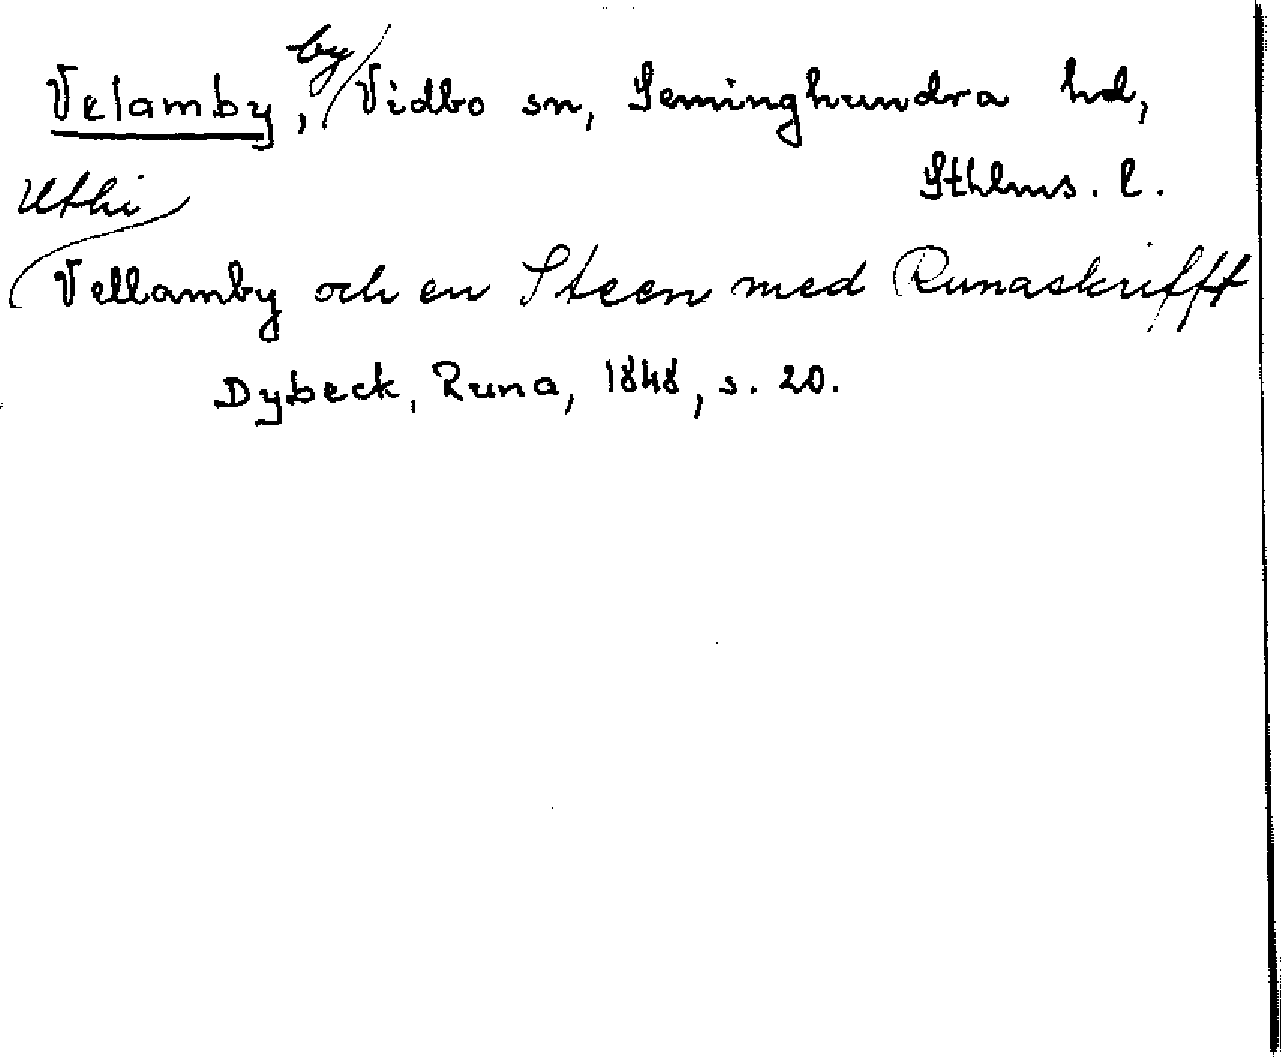 Velamby, by Vidbo sn, Seminghundra hd,
Sthlms. l.
Uthi
Vellamby och en Steen med Runaskrifft
Dybeck, Runa, 1848, s. 20.